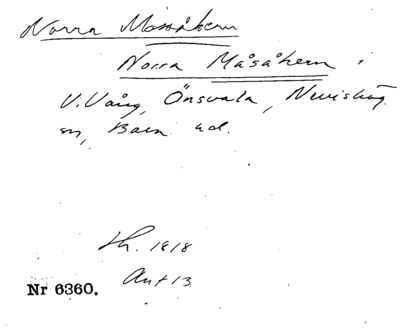 Norra Mossåkern
Norra Måsåkern i
V. Vång, Önsvala, Nevishög
sn, Bara hd.
Lh. 1818
Akt 13.
Nr 6360.